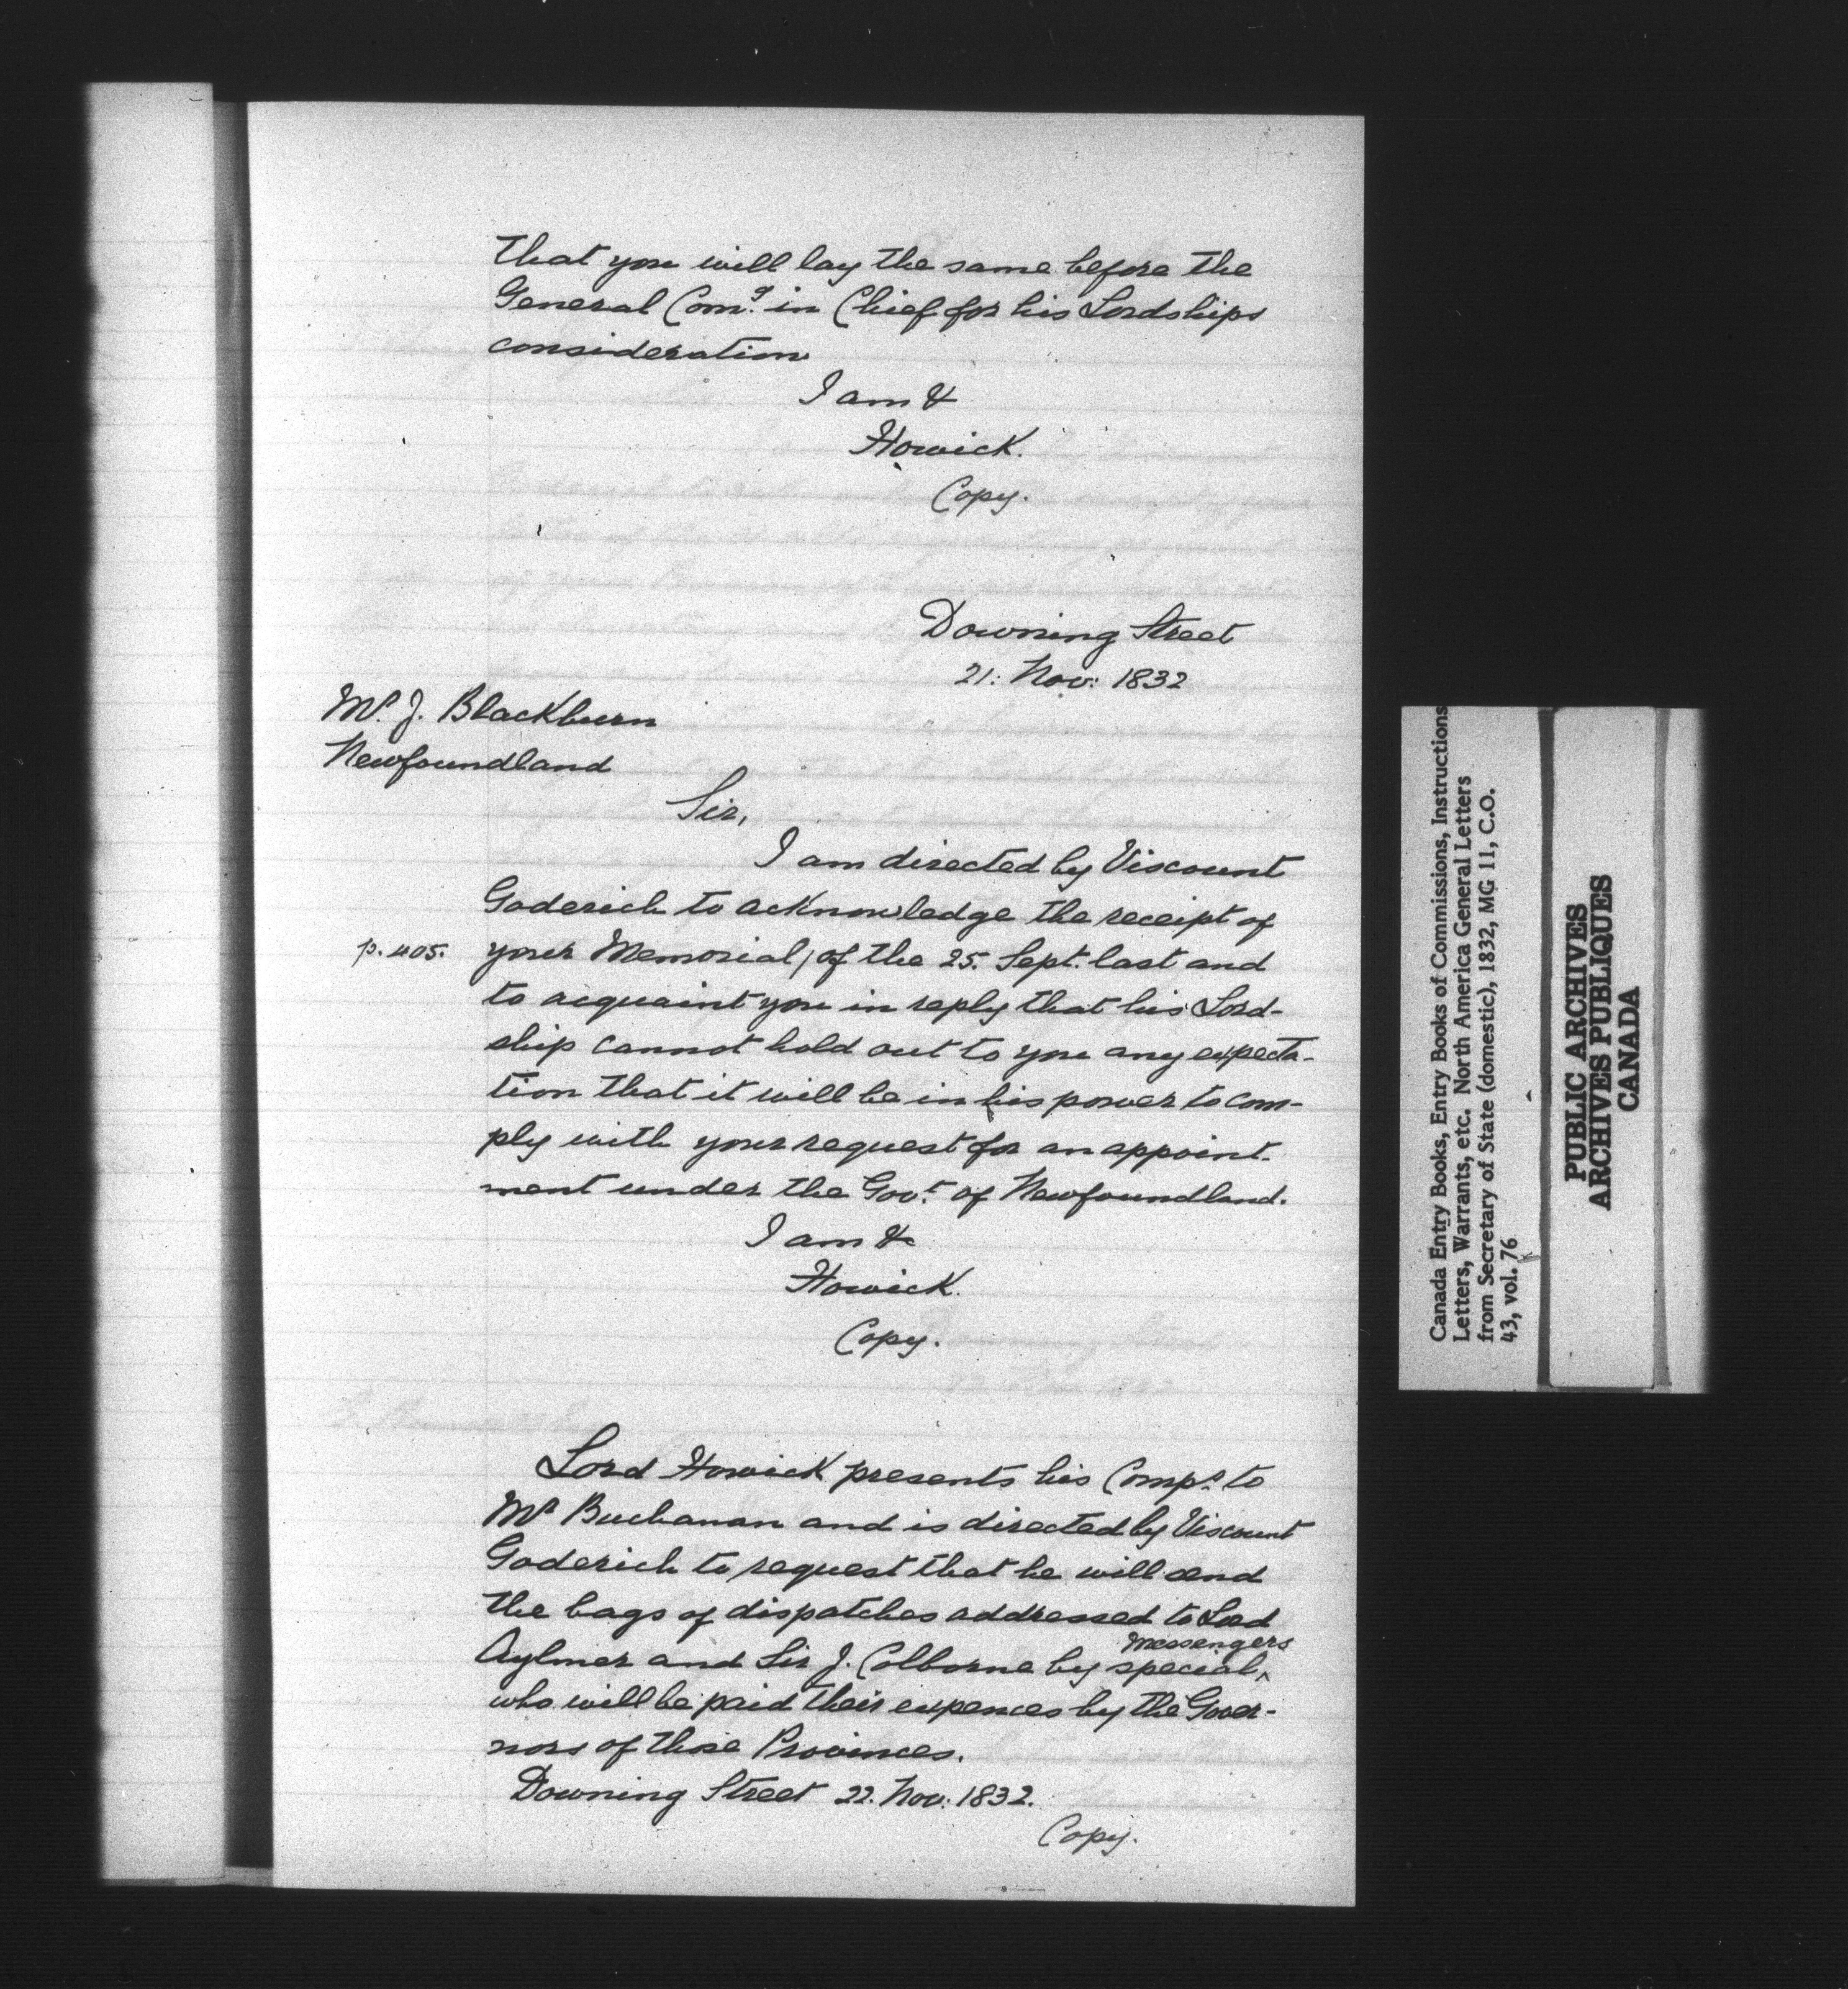 that you will lay the same before the
General Comg. in Chief for his Lordships
consideration
I am &
Howick.
Copy.
Downing Street
21: Nov: 1832
Mr. J. Blackburn
Newfoundland
Sir,
I am directed by Viscount
Goderich to acknowledge the receipt of
p. 405. your Memorial, of the 25. Sept. last and
to acquaint you in reply that his Lord-
ship cannot hold out to you any expecta-
tion that it will be in his power to com-
ply with your request for an appoint-
ment under the Govt. of Newfoundland.
I am &c
Howick.
Copy.
Lord Howick presents his Comps. to
Mr Buchanan and is directed by Viscount
Goderich to request that he will send
the bags of dispatches addressed to Lord
Aylmer and Sir J. Colborne by special ^ messengers
who will be paid their expences by the Gover-
nors of those Provinces.
Downing Street 22. Nov: 1832.
Copy.
Canada Entry Books, Entry Books of Commissions, Instructions
Letters, Warrants, etc. North America General Letters
from Secretary of State (domestic), 1832, MG 11, C.O.
43, vol. 76
PUBLIC ARCHIVES
ARCHIVES PUBLIQUES
CANADA